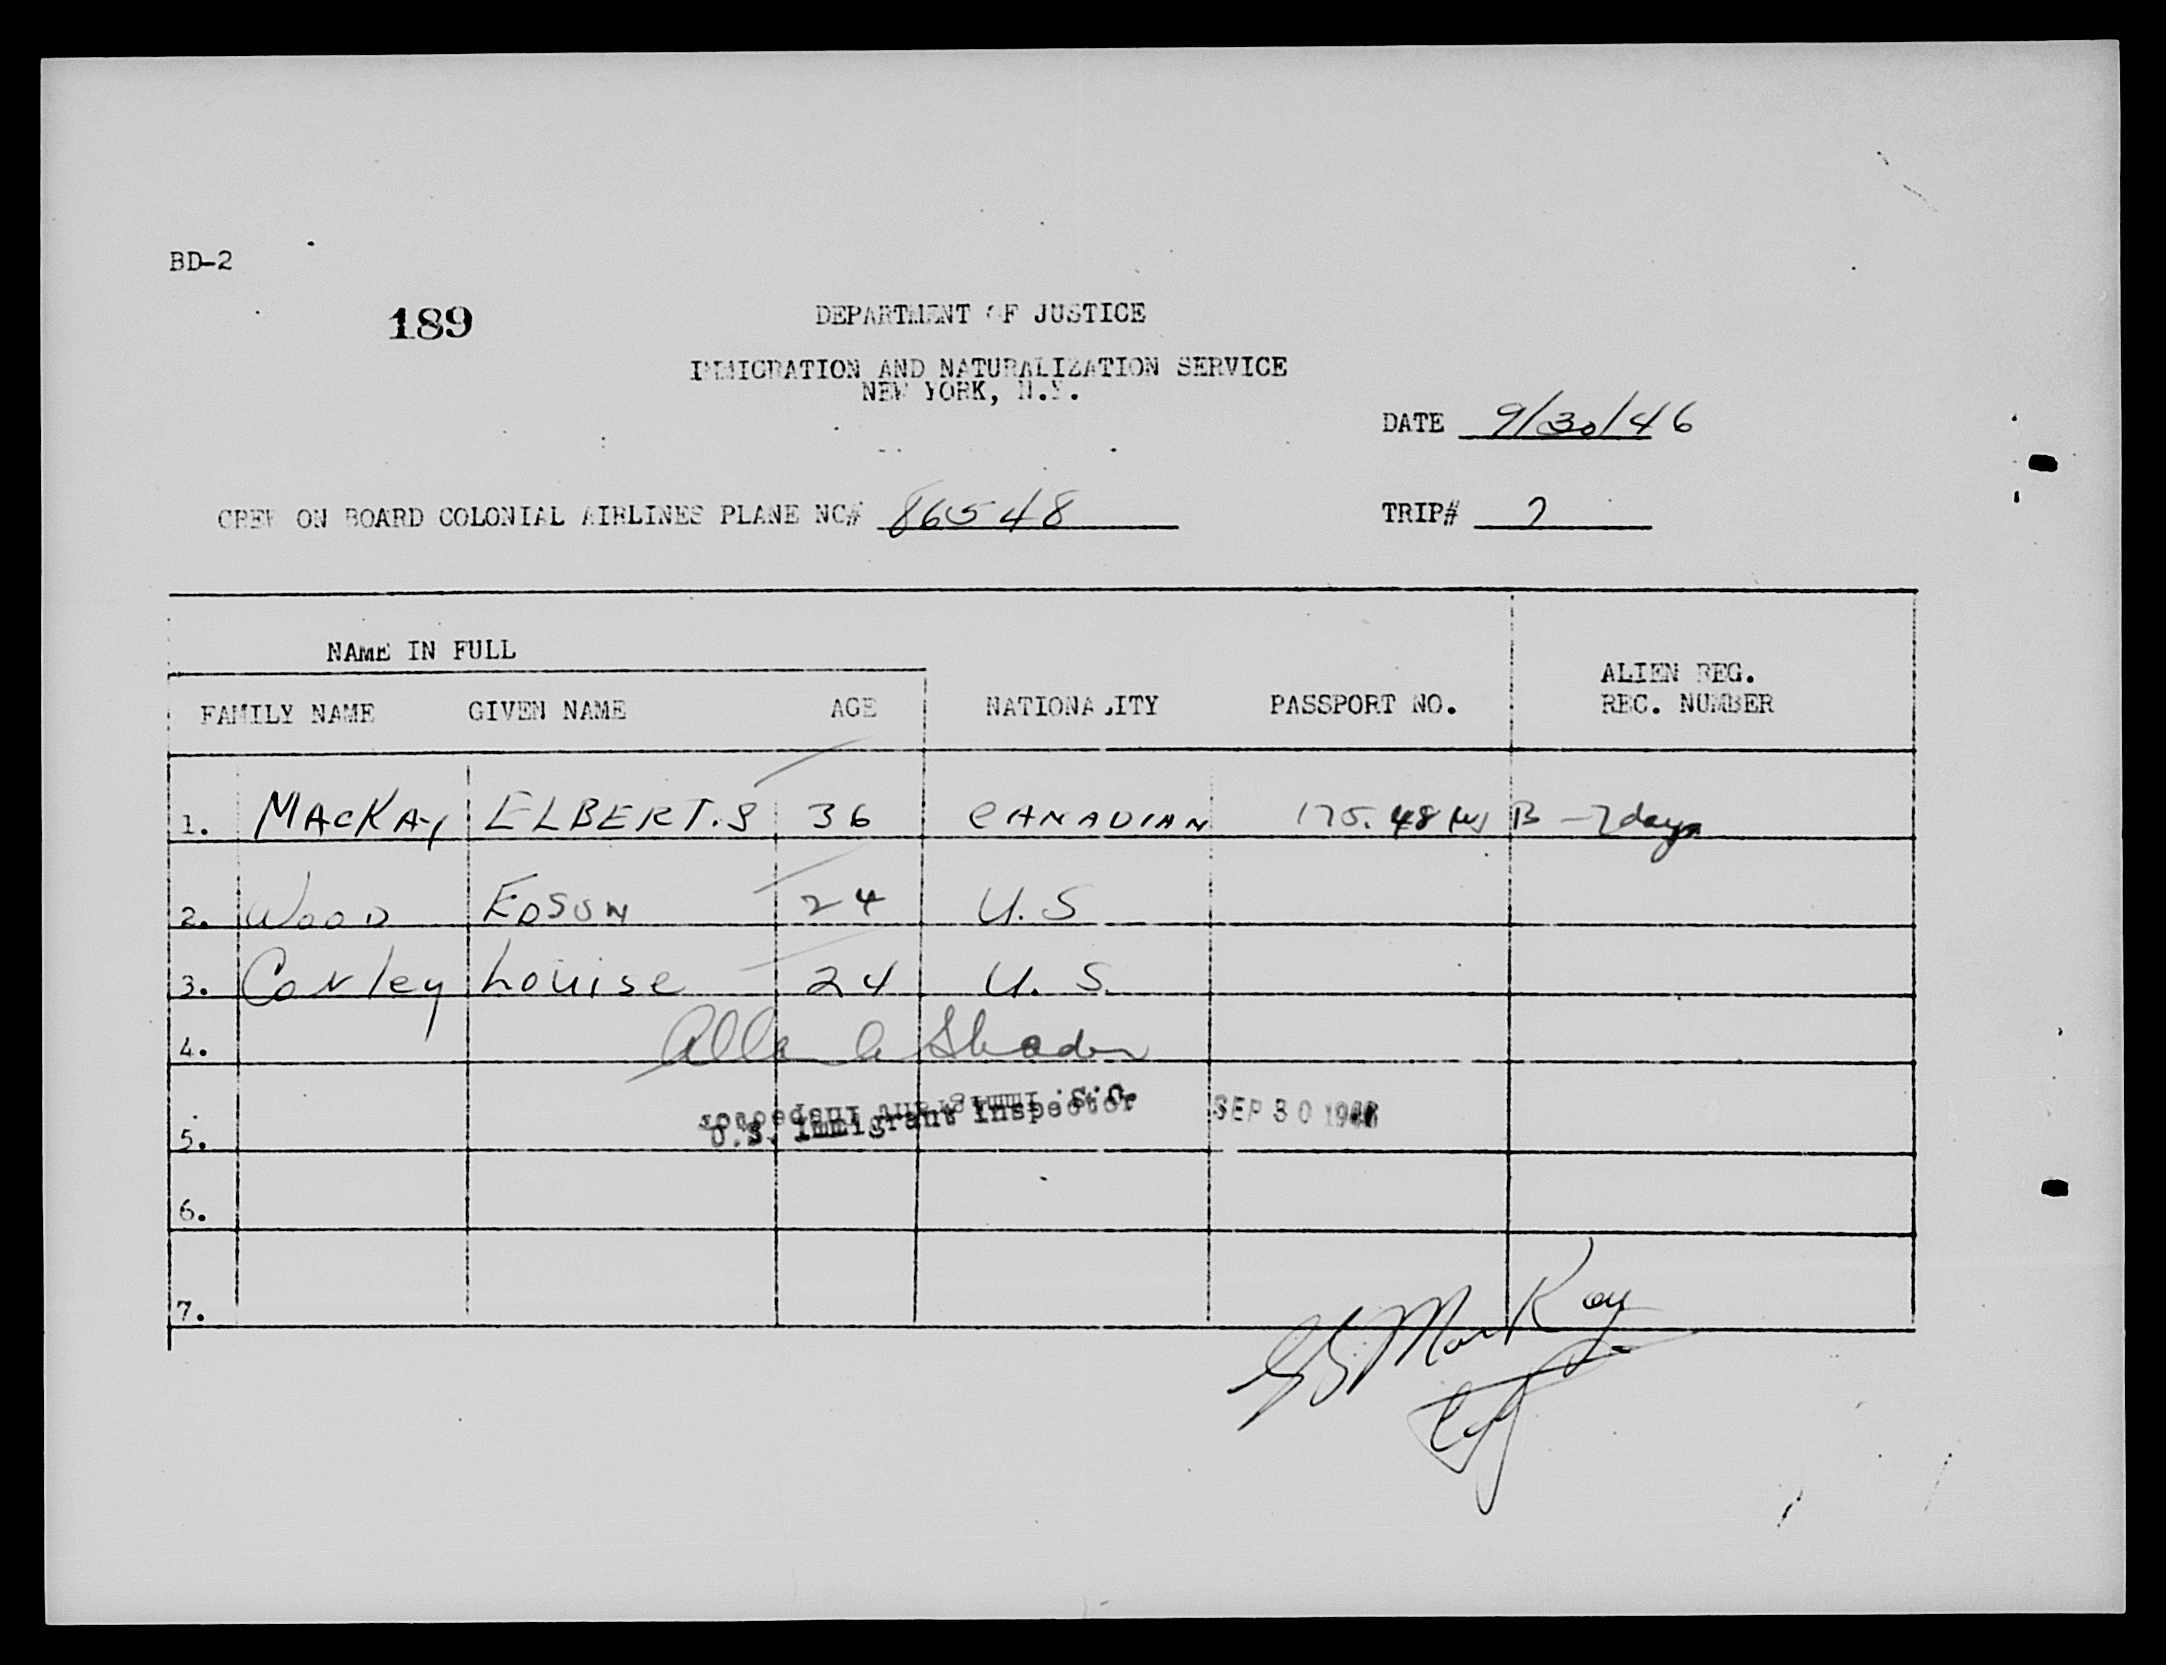 BD-2
189
DEPARTMENT OF JUSTICE
IMMIGRATION AND NATURALIZATION SERVICE
NEW YORK, N.Y.
DATE 9/30/46
CREW ON BOARD COLONIAL AIRLINES PLANE NC# 86548 TRIP# 7
NAME IN FULL
FAMILY NAME GIVEN NAME AGE NATIONALITY PASSPORT NO. ALIEN REG. REC. NUMBER
1. MACKAY ELBERT.S 36 CANADIAN 175.48 B - 7 days
2. WOOD EDSON 24 U.S
3. Corley Louise 24 U.S.
4.
U.S. Immigrant Inspector
U.S. Immigrant Inspector SEP 30 1946
5.
6.
7.
MacKay